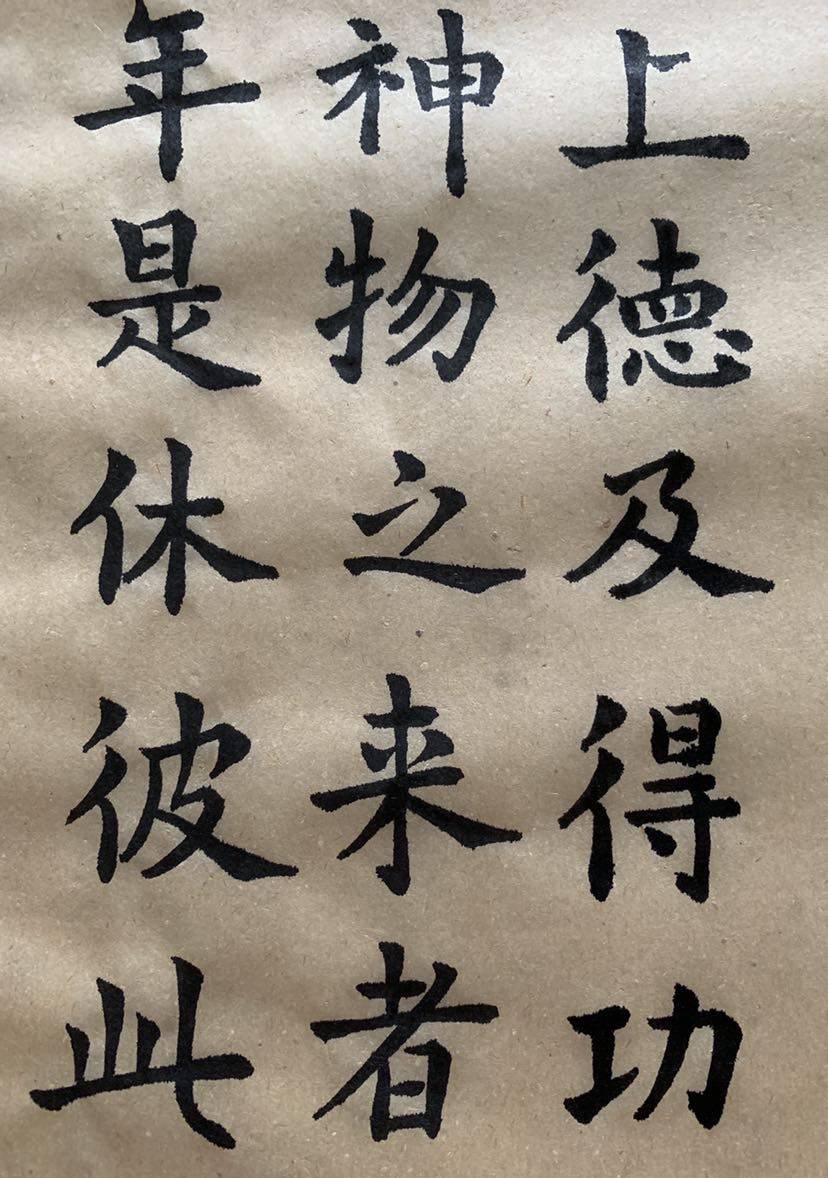 上德及得功
神物之来者
年是休彼此